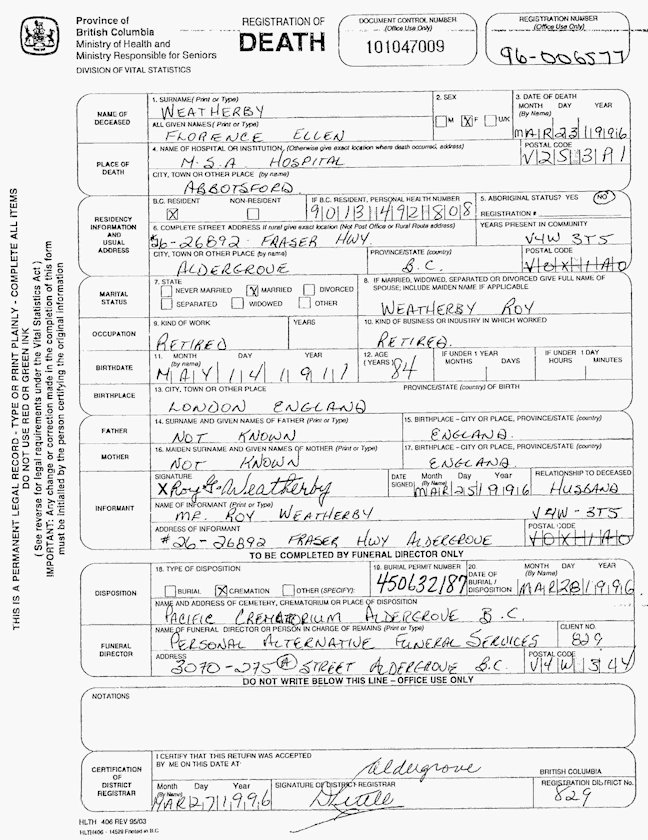 Province of
British Columbia
Ministry of Health and
Ministry Responsible for Seniors
DIVISION OF VITAL STATISTICS
REGISTRATION OF
DEATH
DOCUMENT CONTROL NUMBER
(Office Use Only)
101047009
REGISTRATION NUMBER
(Office Use Only)
96-006577
THIS IS A PERMANENT LEGAL RECORD - TYPE OR PRINT PLAINLY - COMPLETE ALL ITEMS
DO NOT USE RED OR GREEN INK
( See reverse for legal requirements under the Vital Statistics Act )
IMPORTANT: Any change or correction made in the completion of this form
must be initialled by the person certifying the original information
NAME OF DECEASED
1. SURNAME( Print or Type)
WEATHERBY
2. SEX
M X F U/K
3. DATE OF DEATH
MONTH (By Name) DAY YEAR
MAR 23 1996
ALL GIVEN NAMES( Print or Type)
FLORENCE ELLEN
PLACE OF DEATH
4. NAME OF HOSPITAL OR INSTITUTION, (Otherwise give exact location where death occurred, address)
M.S.A. HOSPITAL
POSTAL CODE
V2S 3P1
CITY, TOWN OR OTHER PLACE (by name)
ABBOTSFORD
RESIDENCY INFORMATION AND USUAL ADDRESS
B.C. RESIDENT X NON-RESIDENT
IF B.C. RESIDENT, PERSONAL HEALTH NUMBER
9013492808
5. ABORIGINAL STATUS? YES NO
REGISTRATION #
6. COMPLETE STREET ADDRESS If rural give exact location (Not Post Office or Rural Route address)
#26-26892 FRASER HWY.
YEARS PRESENT IN COMMUNITY
V4W 3T5
CITY, TOWN OR OTHER PLACE (by name)
ALDERGROVE
PROVINCE/STATE (country)
B.C.
POSTAL CODE
V0X 1A0
MARITAL STATUS
7. STATE
NEVER MARRIED X MARRIED DIVORCED
SEPARATED WIDOWED OTHER
8. IF MARRIED, WIDOWED, SEPARATED OR DIVORCED GIVE FULL NAME OF SPOUSE; INCLUDE MAIDEN NAME IF APPLICABLE
WEATHERBY ROY
OCCUPATION
9. KIND OF WORK YEARS
RETIRED
10. KIND OF BUSINESS OR INDUSTRY IN WHICH WORKED
RETIRED.
BIRTHDATE
11. MONTH (by name) DAY YEAR
MAY 14 1911
12. AGE (YEARS)
84
IF UNDER 1 YEAR MONTHS DAYS
IF UNDER 1 DAY HOURS MINUTES
BIRTHPLACE
13. CITY, TOWN OR OTHER PLACE PROVINCE/STATE (country) OF BIRTH
LONDON ENGLAND
FATHER
14. SURNAME AND GIVEN NAMES OF FATHER (Print or Type)
NOT KNOWN
15. BIRTHPLACE - CITY OR PLACE, PROVINCE/STATE (country)
ENGLAND.
MOTHER
16. MAIDEN SURNAME AND GIVEN NAMES OF MOTHER (Print or Type)
NOT KNOWN
17. BIRTHPLACE - CITY OR PLACE, PROVINCE/STATE (country)
ENGLAND
INFORMANT
SIGNATURE
X Roy G. Weatherby
DATE SIGNED Month (By Name) Day Year
MAR 25 1996
RELATIONSHIP TO DECEASED
HUSBAND
NAME OF INFORMANT (Print or Type)
MR. ROY WEATHERBY
V4W-3T5
ADDRESS OF INFORMANT
#26-26892 FRASER HWY ALDERGROVE
POSTAL CODE
V0X 1A0
TO BE COMPLETED BY FUNERAL DIRECTOR ONLY
DISPOSITION
18. TYPE OF DISPOSITION
BURIAL X CREMATION OTHER (SPECIFY):
19. BURIAL PERMIT NUMBER
450632187
20. DATE OF BURIAL / DISPOSITION
MONTH (By Name) DAY YEAR
MAR 28 1996
NAME AND ADDRESS OF CEMETERY, CREMATORIUM OR PLACE OF DISPOSITION
PACIFIC CREMATORIUM ALDERGROVE B.C.
FUNERAL DIRECTOR
NAME OF FUNERAL DIRECTOR OR PERSON IN CHARGE OF REMAINS (Print or Type)
PERSONAL ALTERNATIVE FUNERAL SERVICES
CLIENT NO.
829
ADDRESS
3070-275 A STREET ALDERGROVE B.C.
POSTAL CODE
V4W 34Y
DO NOT WRITE BELOW THIS LINE - OFFICE USE ONLY
NOTATIONS
CERTIFICATION OF DISTRICT REGISTRAR
I CERTIFY THAT THIS RETURN WAS ACCEPTED
BY ME ON THIS DATE AT
Aldergrove
BRITISH COLUMBIA
Month (By Name) Day Year
MAR 27 1996
SIGNATURE OF DISTRICT REGISTRAR
REGISTRATION DISTRICT No.
829
HLTH 406 REV 95/03
HLTH406 - 14529 Printed in B.C.